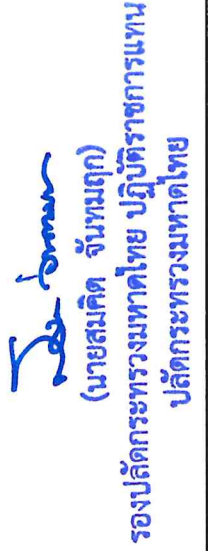 (นายสมคิด จันทมฤก)
รองปลัดกระทรวงมหาดไทย ปฏิบัติราชการแทน
ปลัดกระทรวงมหาดไทย